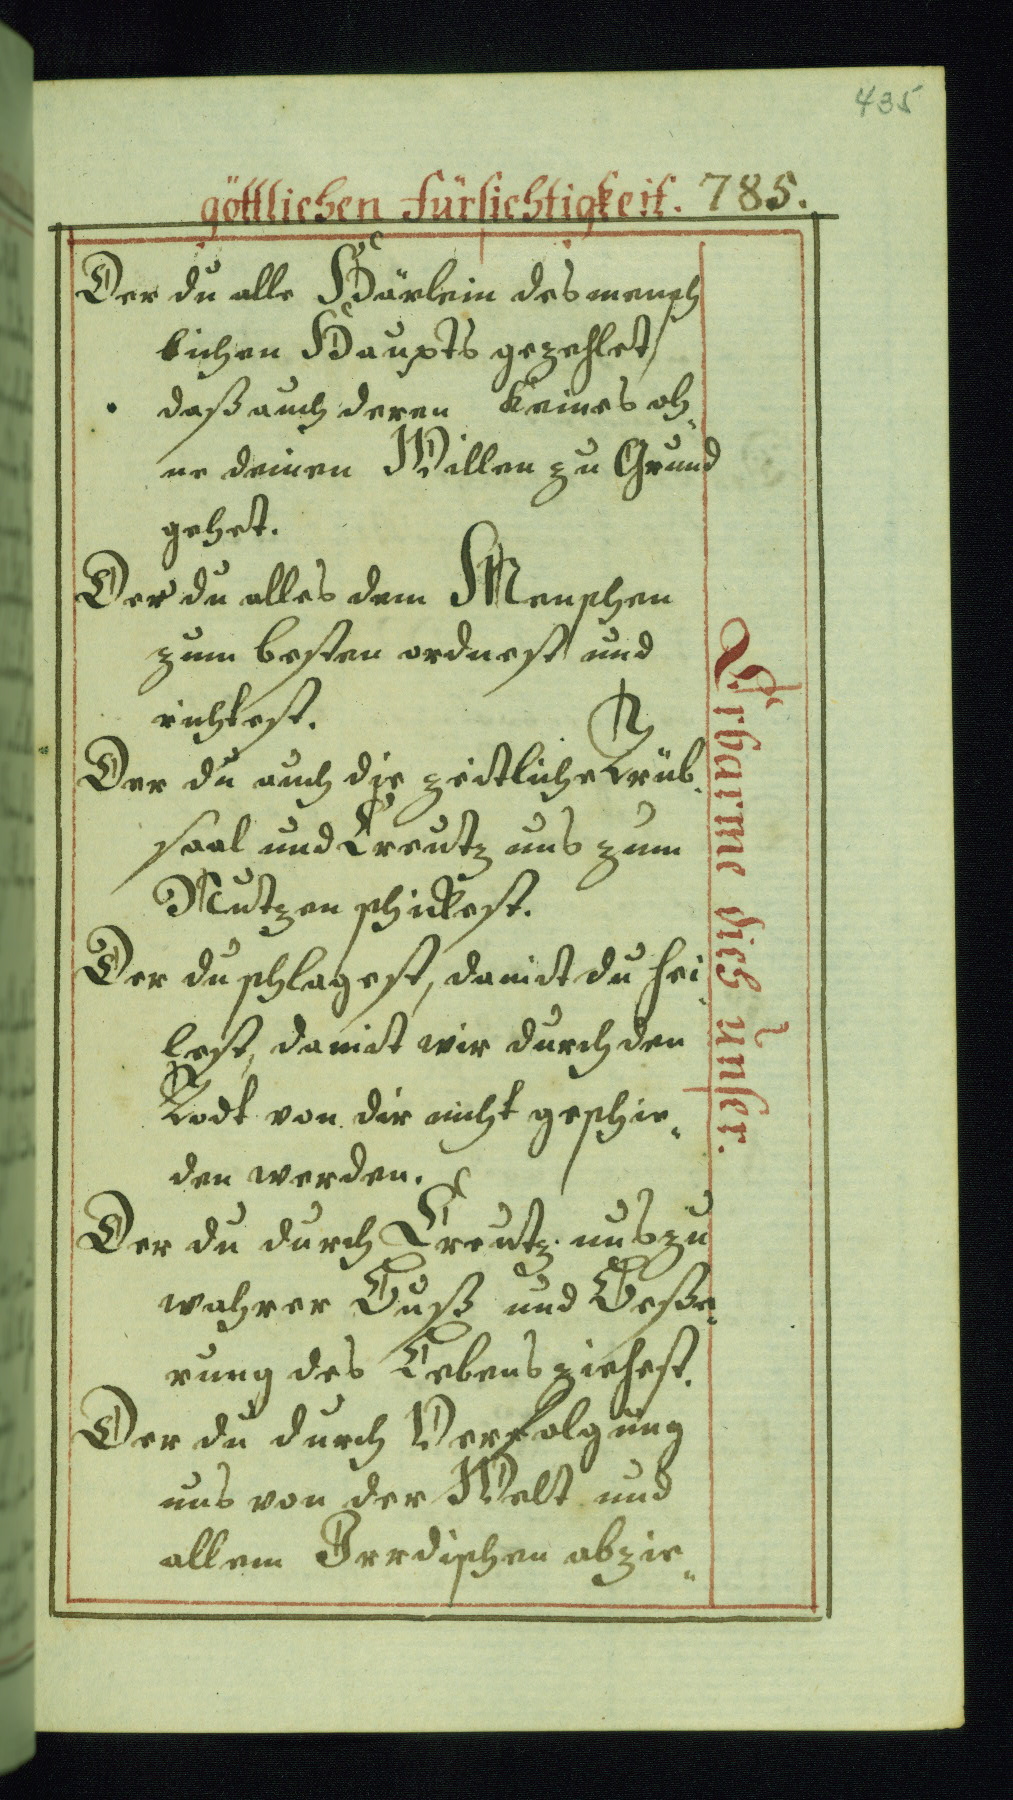 435
göttlichen Fürsichtigkeit. 785.
Der du alle Härlein des mensch
lichen Haupts gezehlet,
daß auch deren keines oh-
ne deinen Willen zu Grund
gehet.
Der du alles dem Menschen
zum besten ordnest und
richtest.
Der du auch die zeitliche Trüb-
saal und Creutz uns zum
Nutzen schickest.
Der du schlagest, damit du hei-
lest, damit wir durch den
Todt von dir nicht geschie-
den werden.
Der du durch Creutz uns zu
wahrer Buß und Beße-
rung des Lebens ziehest.
Der du durch Verfolgung
uns von der Welt und
allem Irrdischen abzie-
Erbarme dich unser.